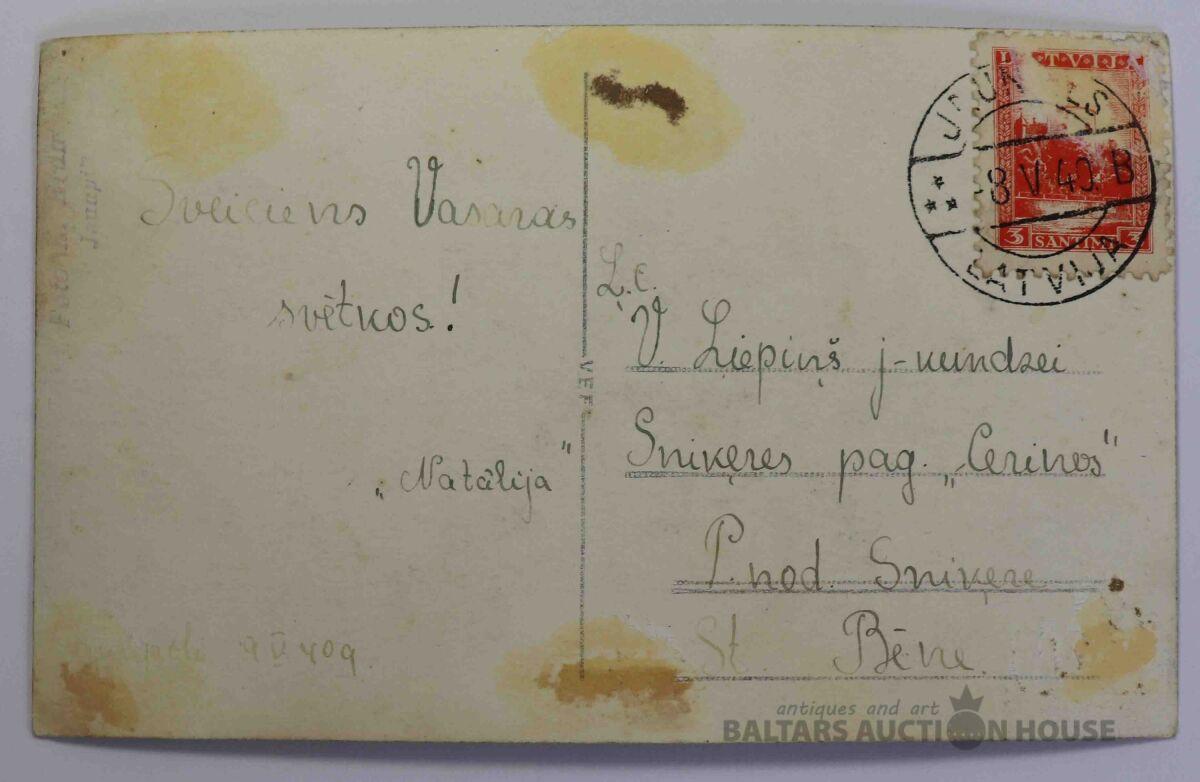 Sveiciens Vasaras
svētkos!
„Natālija"
9 V 40g.
VEF
L.c.
V. Liepiņš j-kundzei
Sniķeres pag. „Cerinos"
P. nod. Sniķere
St. Bēne
8 V. 40. B
LATVIJA
3 SANTIMI 3
antiques and art
BALTARS AUCTION HOUSE